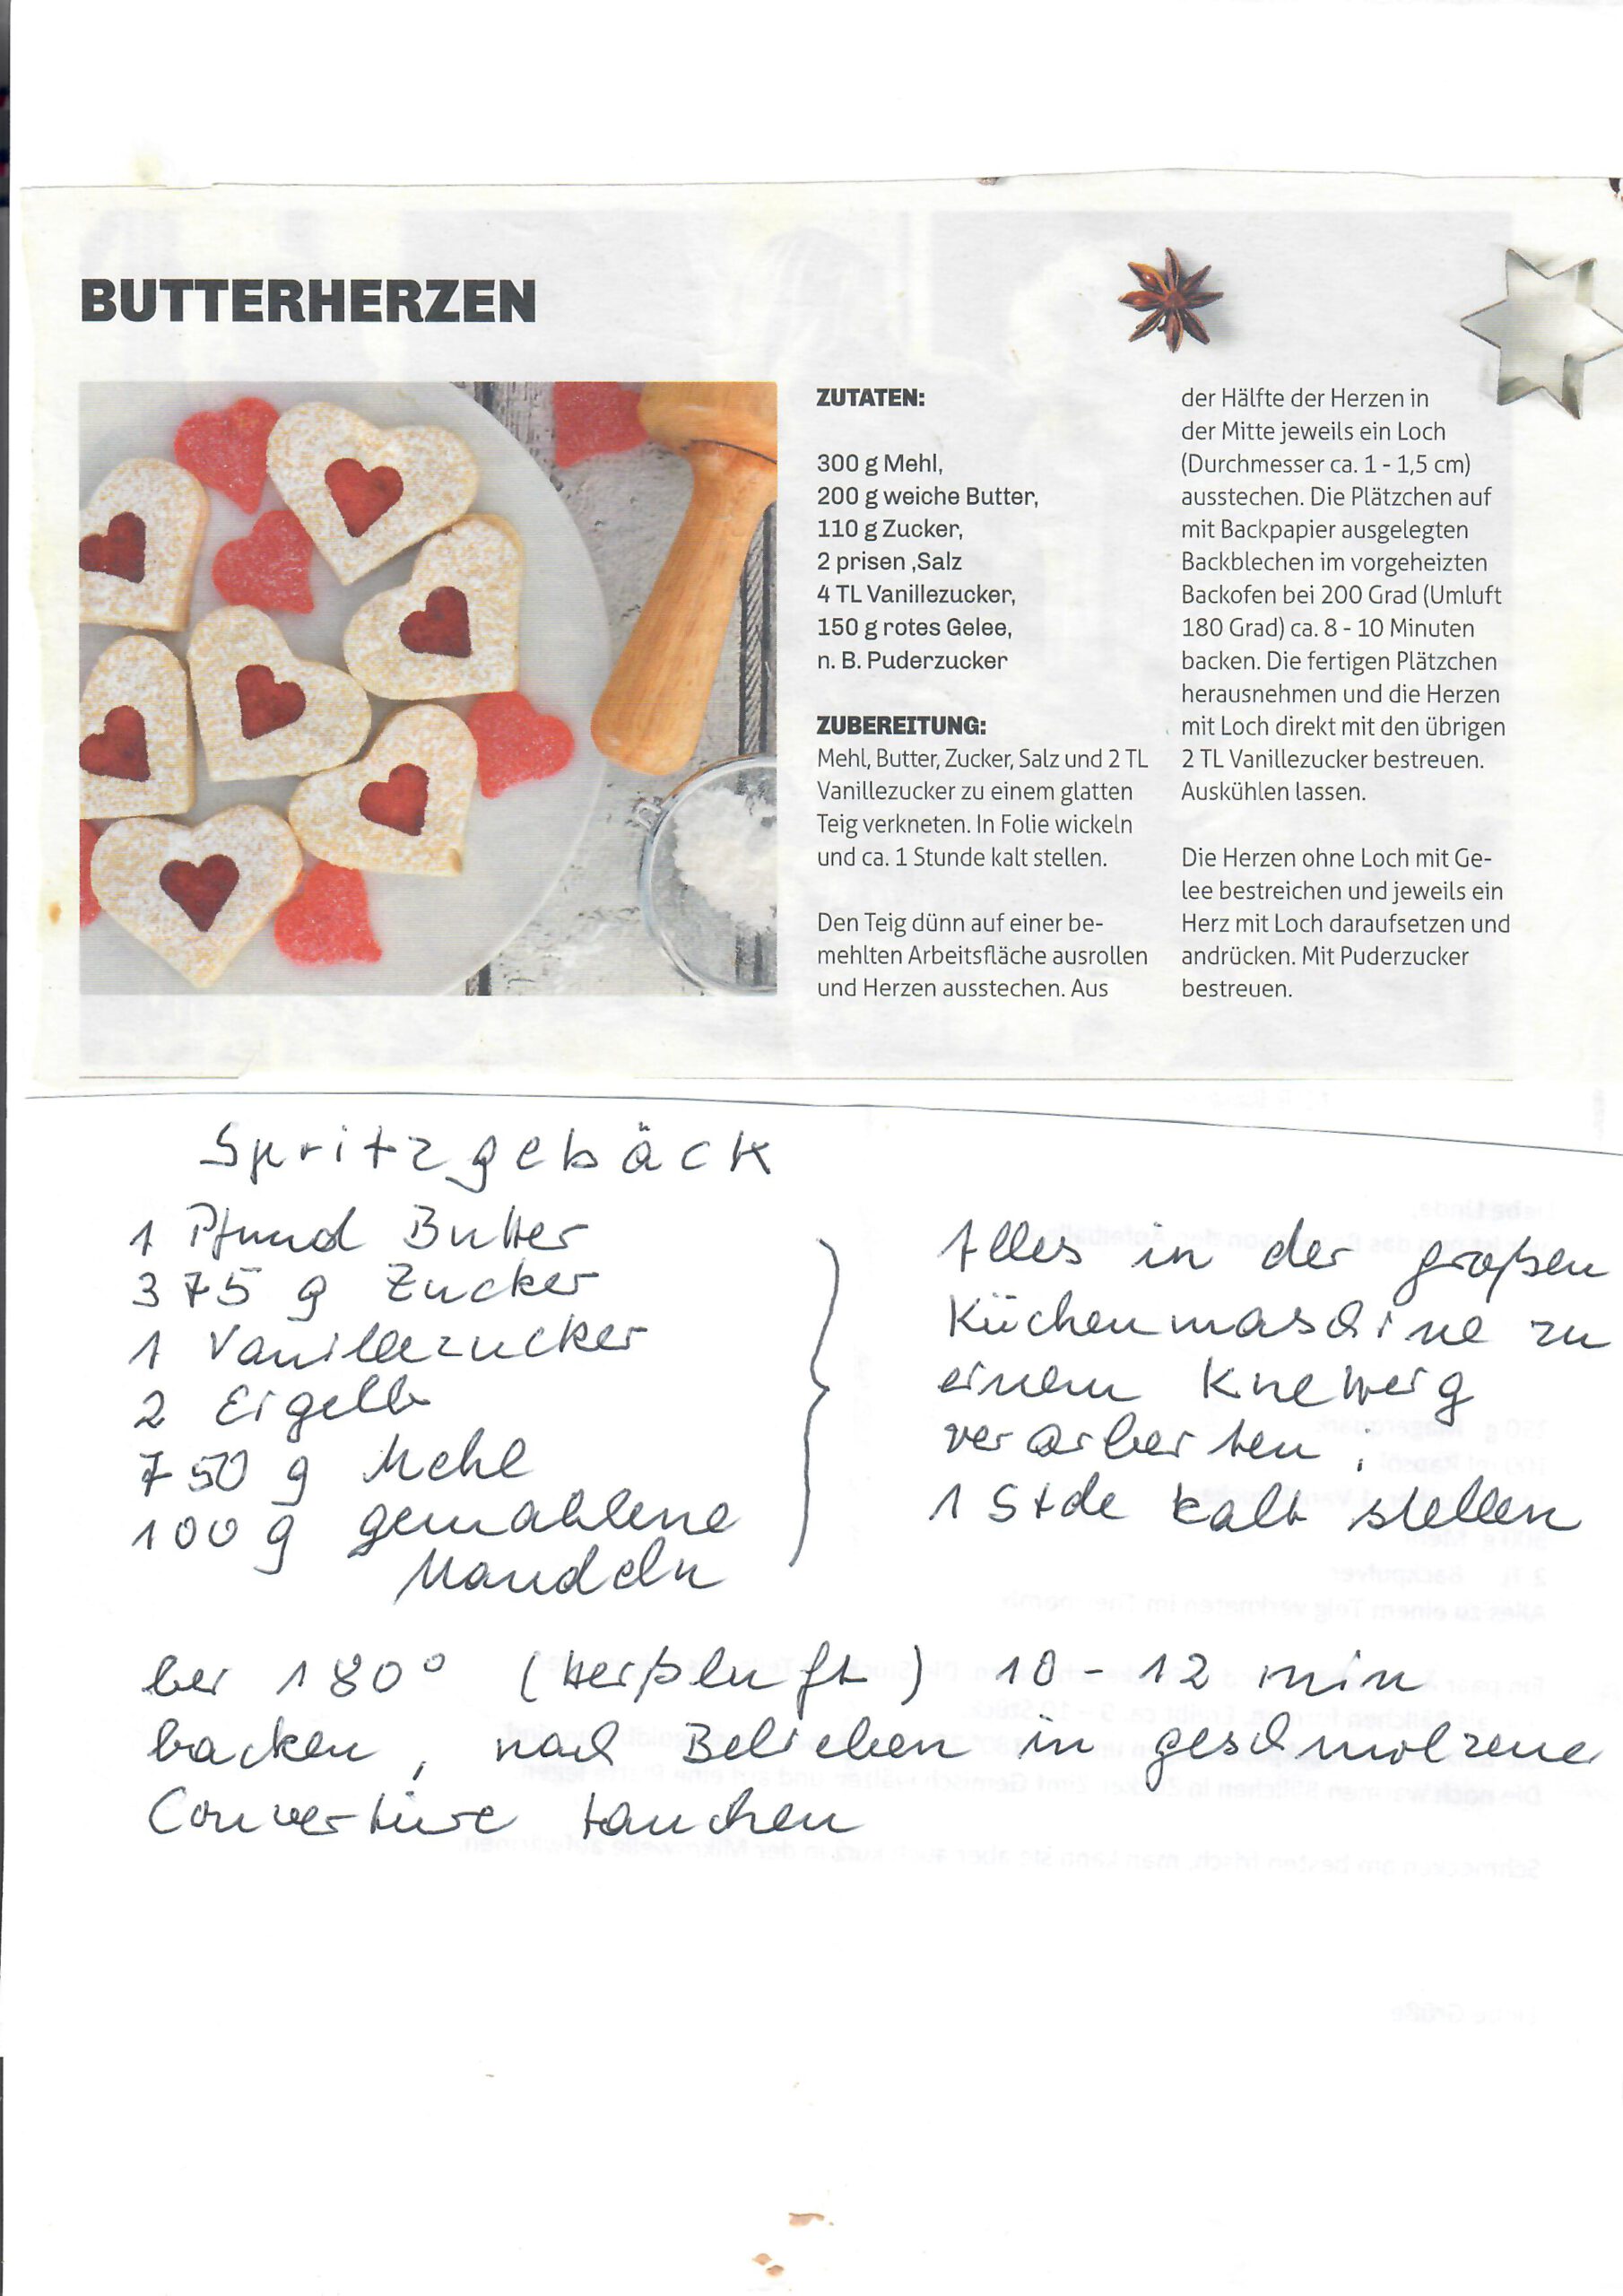 BUTTERHERZEN
ZUTATEN:
300 g Mehl,
200 g weiche Butter,
110 g Zucker,
2 prisen ,Salz
4 TL Vanillezucker,
150 g rotes Gelee,
n. B. Puderzucker
ZUBEREITUNG:
Mehl, Butter, Zucker, Salz und 2 TL
Vanillezucker zu einem glatten
Teig verkneten. In Folie wickeln
und ca. 1 Stunde kalt stellen.
Den Teig dünn auf einer be-
mehlten Arbeitsfläche ausrollen
und Herzen ausstechen. Aus
der Hälfte der Herzen in
der Mitte jeweils ein Loch
(Durchmesser ca. 1 - 1,5 cm)
ausstechen. Die Plätzchen auf
mit Backpapier ausgelegten
Backblechen im vorgeheizten
Backofen bei 200 Grad (Umluft
180 Grad) ca. 8 - 10 Minuten
backen. Die fertigen Plätzchen
herausnehmen und die Herzen
mit Loch direkt mit den übrigen
2 TL Vanillezucker bestreuen.
Auskühlen lassen.
Die Herzen ohne Loch mit Ge-
lee bestreichen und jeweils ein
Herz mit Loch daraufsetzen und
andrücken. Mit Puderzucker
bestreuen.
Spritzgebäck
1 Pfund Butter
375 g Zucker
1 Vanillezucker
2 Eigelb
750 g Mehl
100 g gemahlene
Mandeln
Alles in der großen
Küchenmaschine zu
einem Knetteig
verarbeiten;
1 Stde kalt stellen
bei 180° (Heißluft) 10 - 12 min
backen, nach Belieben in geschmolzene
Couvertüre tauchen